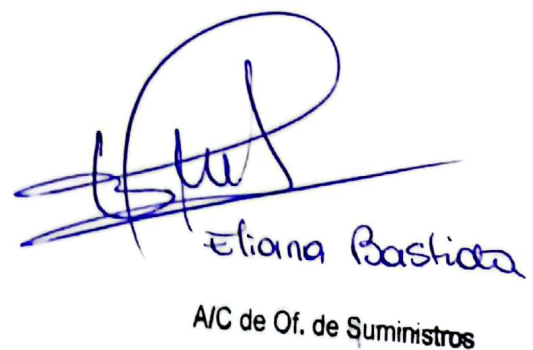 Eliana Bastida
A/C de Of. de Suministros